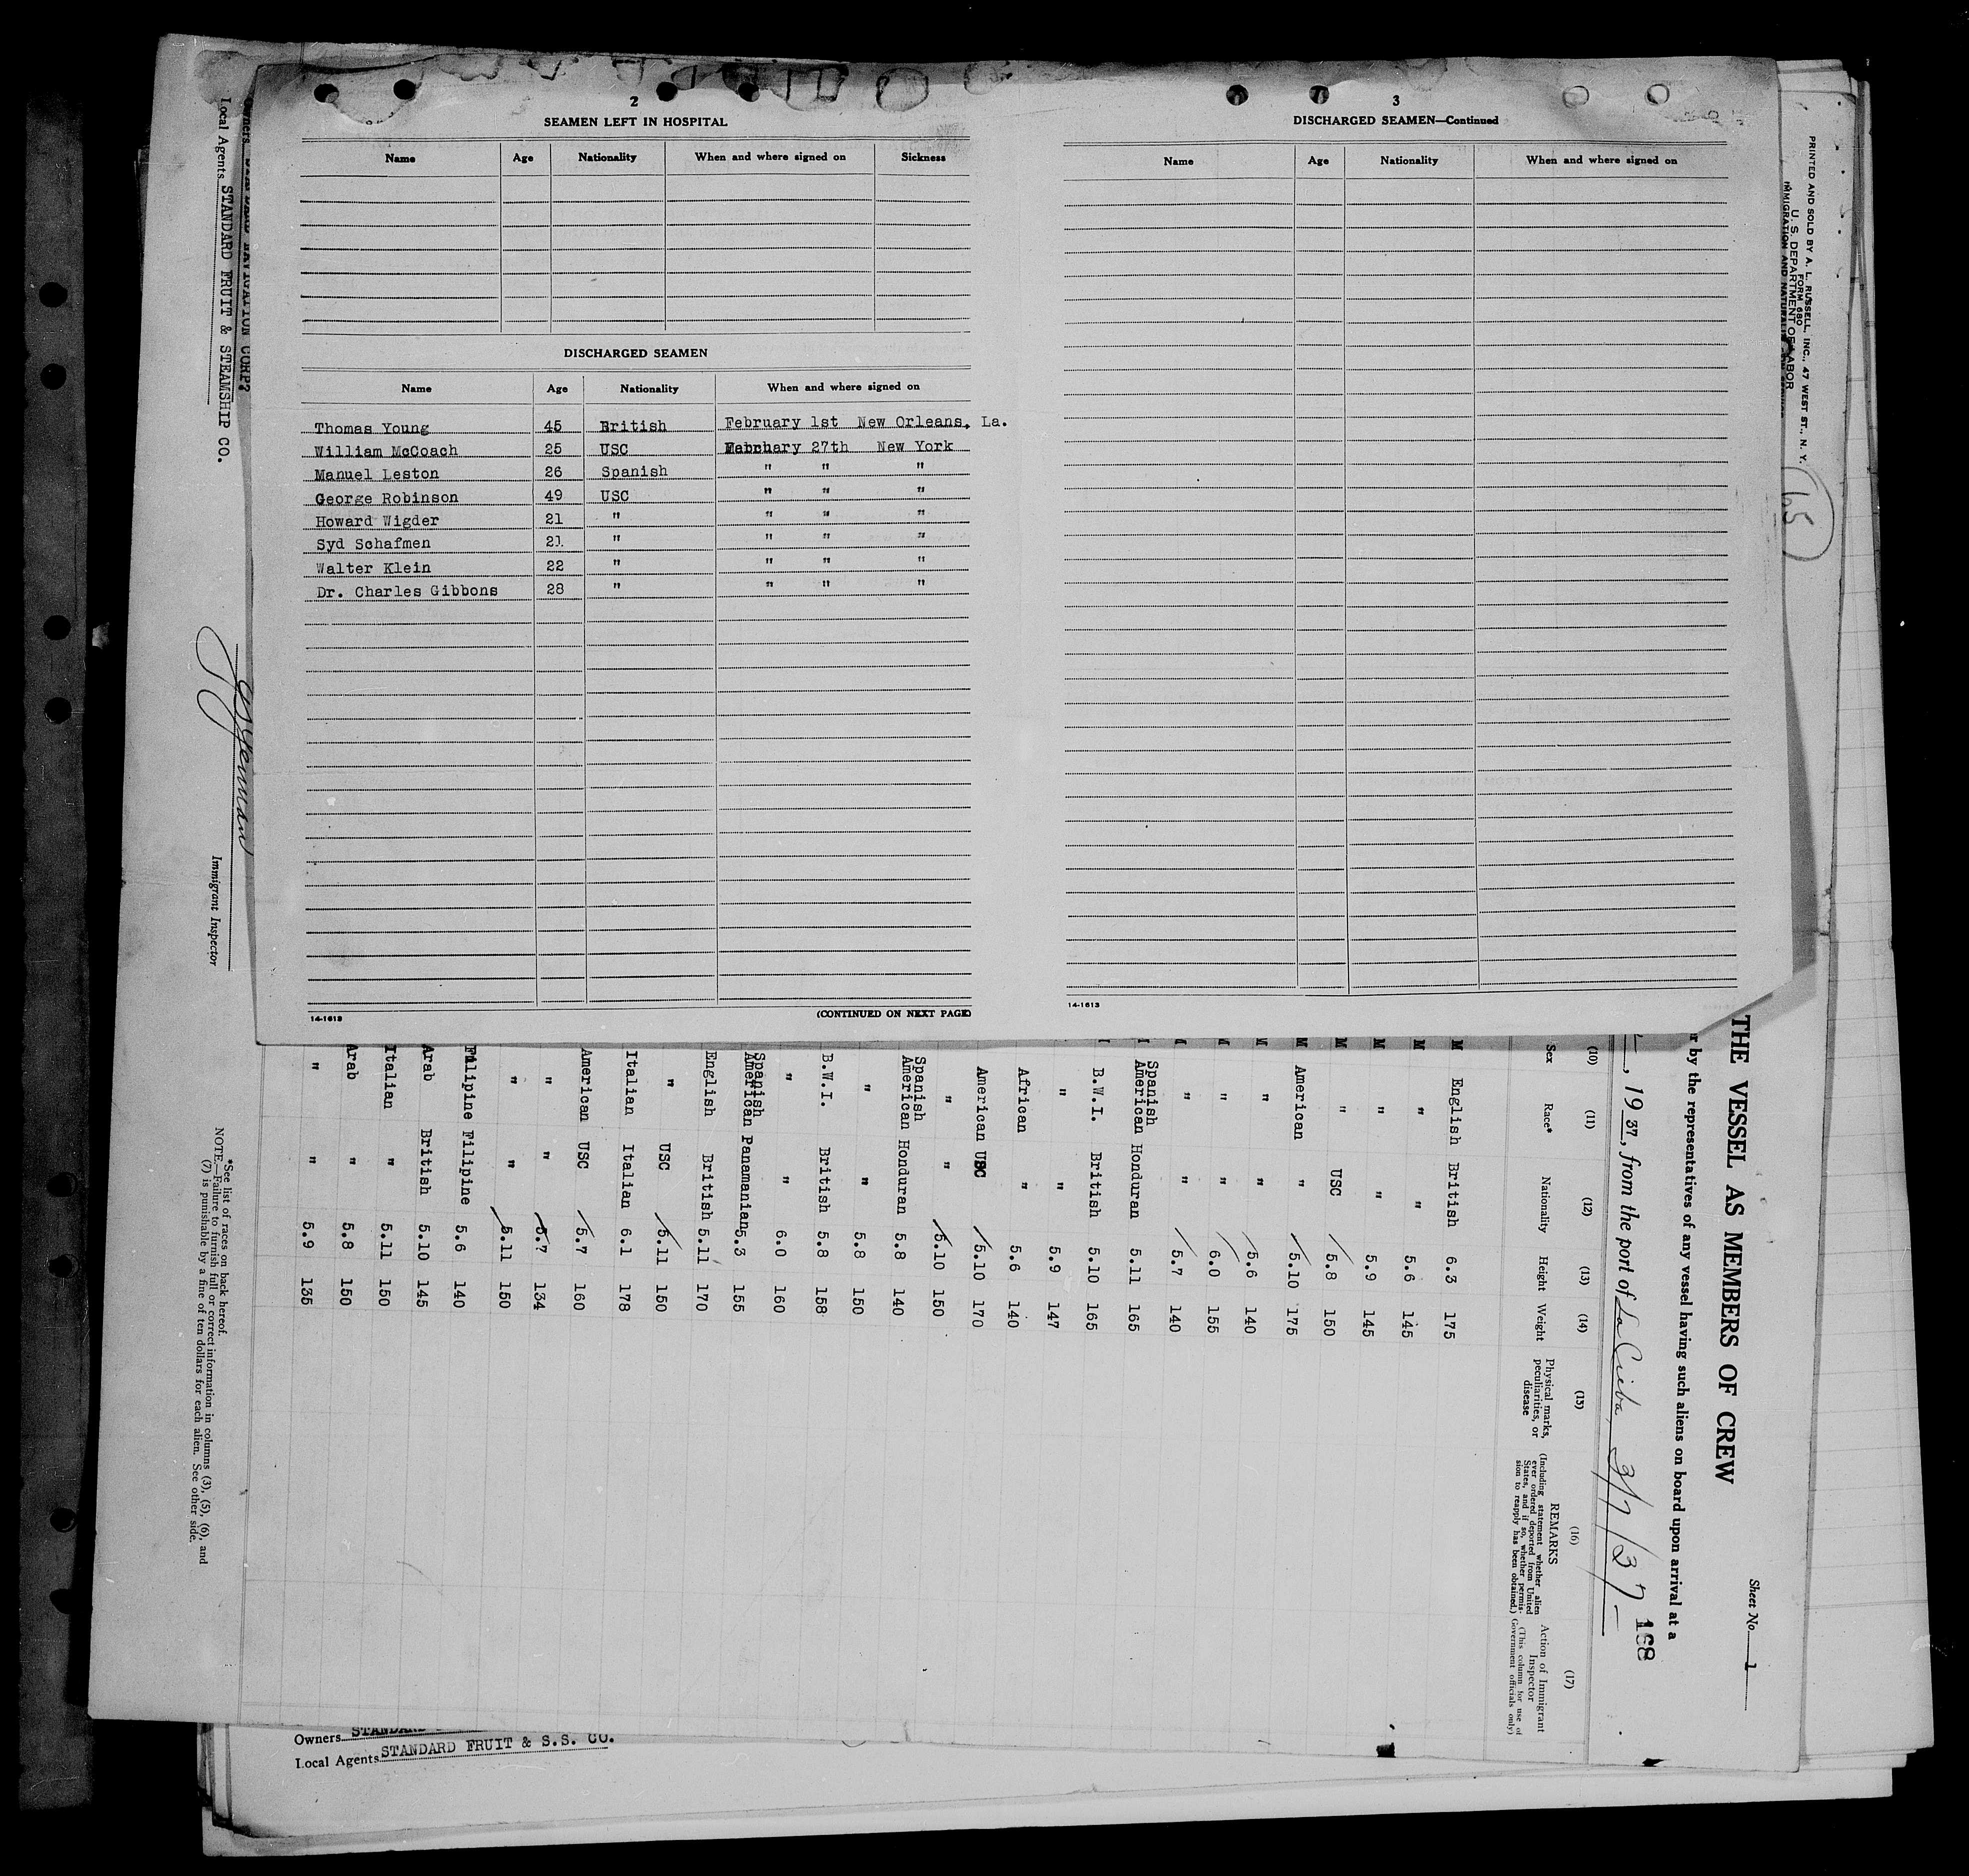 2
SEAMEN LEFT IN HOSPITAL
Name Age Nationality When and where signed on Sickness
DISCHARGED SEAMEN
Name Age Nationality When and where signed on
Thomas Young 45 British February 1st New Orleans, La.
William McCoach 25 USC 27th New York
Manuel Leston 26 Spanish " " "
George Robinson 49 USC " " "
Howard Wigder 21 " " " "
Syd Schafmen 21 " " " "
Walter Klein 22 " " " "
Dr. Charles Gibbons 28 " " " "
14-1613
(CONTINUED ON NEXT PAGE)
3
DISCHARGED SEAMEN—Continued
Name Age Nationality When and where signed on
14-1613
PRINTED AND SOLD BY A. L. RUSSELL, INC., 47 WEST ST., N. Y.
FORM 680
U. S. DEPARTMENT OF LABOR
IMMIGRATION AND
65
Sheet No. 1
THE VESSEL AS MEMBERS OF CREW
by the representatives of any vessel having such aliens on board upon arrival at a
168
, 19 37, from the port of La Ceiba 3/7/37
(10) (11) (12) (13) (14) (15) (16) (17)
Sex Race* Nationality Height Weight Physical marks, peculiarities, or disease REMARKS (Including statement whether alien ever ordered deported from United States, and if so, whether permission to reapply has been obtained.) Action of Immigrant Inspector (This column for use of Government officials only)
M English British 6.3 175
M " " 5.6 145
M " " 5.9 145
M " USC 5.8 150
M American " 5.10 175
M " " 5.6 140
M " " 6.0 155
M " " 5.7 140
Spanish
American Honduran 5.11 165
B.W.I. British 5.10 165
" " 5.9 147
African " 5.6 140
American USC 5.10 170
" " 5.10 150
Spanish
American Honduran 5.8 140
" " 5.8 150
B.W.I. British 5.8 158
" " 6.0 160
Spanish
American Panamanian 5.3 155
English British 5.11 170
" USC 5.11 150
Italian Italian 6.1 178
American USC 5.7 160
" " 5.7 134
" " 5.11 150
Filipine Filipine 5.6 140
Arab British 5.10 145
Italian " 5.11 150
Arab " 5.8 150
" " 5.9 135
NAVIGATION CORP?
Local Agents STANDARD FRUIT & STEAMSHIP CO.
Immigrant Inspector
*See list of races on back hereof.
NOTE.—Failure to furnish full or correct information in columns (3), (5), (6), and
(7) is punishable by a fine of ten dollars for each alien. See other side.
Owners STANDARD
Local Agents STANDARD FRUIT & S.S. CO.